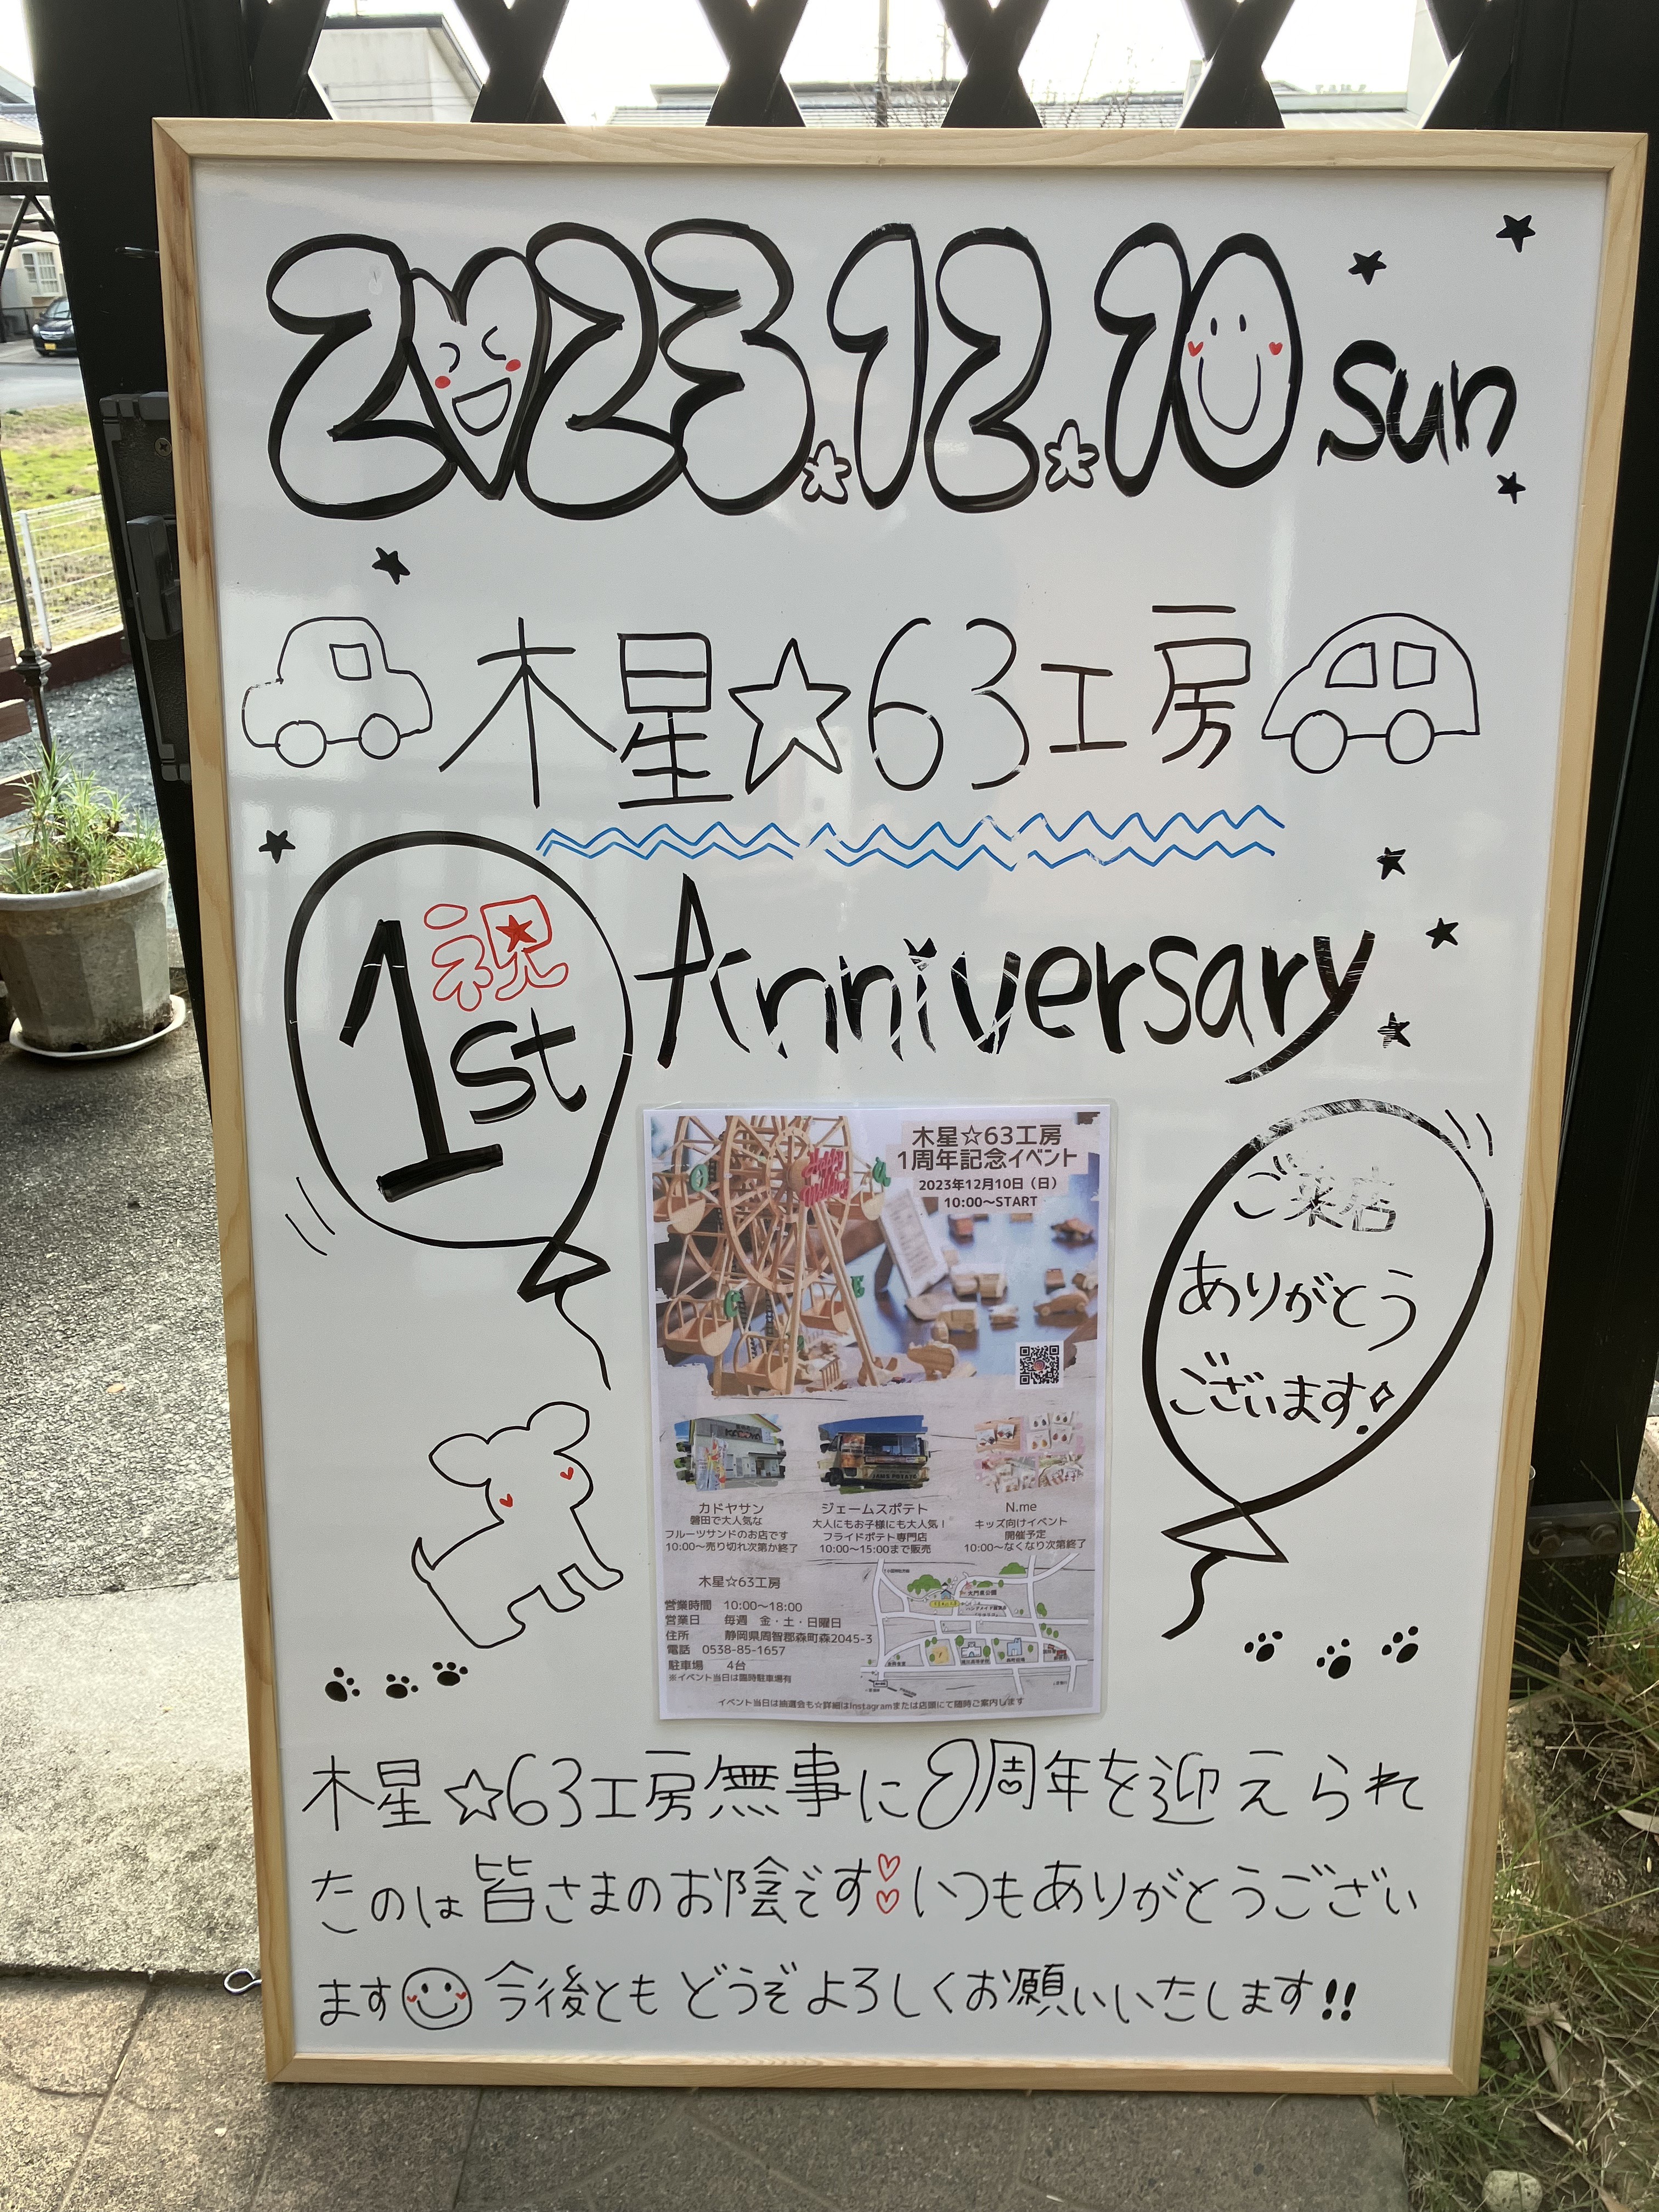 2023.12.10 sun
木星☆63工房
祝
1st Anniversary
木星☆63工房
1周年記念イベント
2023年12月10日（日）
10:00〜START
ご来店
ありがとう
ございます!
カドヤサン
磐田で大人気な
フルーツサンドのお店です
10:00〜売り切れ次第か終了
ジェームスポテト
大人にもお子様にも大人気！
フライドポテト専門店
10:00〜15:00まで販売
N.me
キッズ向けイベント
開催予定
10:00〜なくなり次第終了
木星☆63工房
営業時間 10:00〜18:00
営業日 毎週 金・土・日曜日
住所 静岡県周智郡森町森2045-3
電話 0538-85-1657
駐車場 4台
※イベント当日は臨時駐車場有
イベント当日は抽選会も☆詳細はInstagramまたは店頭にて随時ご案内します
木星☆63工房無事に1周年を迎えられ
たのは皆さまのお陰です いつもありがとうござい
ます 今後とも どうぞよろしくお願いいたします!!